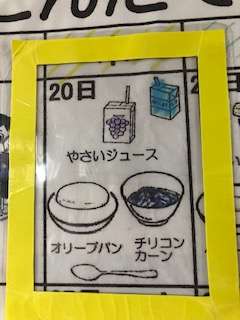 こんだて
20日
2
やさいジュース
オリーブパン
チリコン
カーン